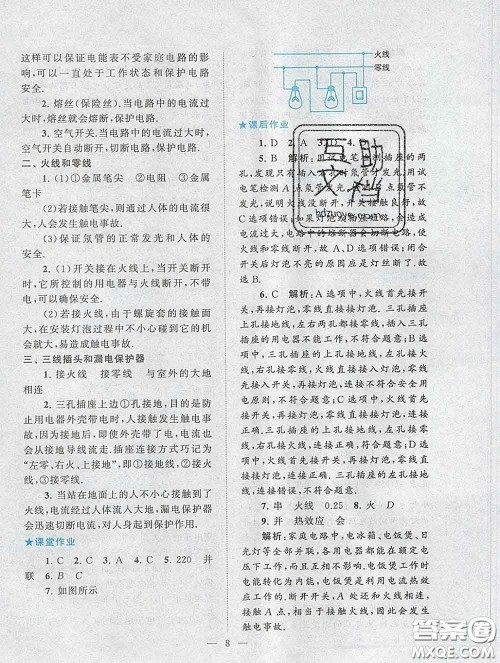 这样可以保证电能表不受家庭电路的影
响,可以一直处于工作状态和保护电路
安全.
2. 熔丝(保险丝). 当电路中的电流过
大时,熔丝就会熔断,保护电路.
3. 空气开关. 当电路中的电流过大
时,空气开关自动切断电路,保护电路.
二、火线和零线
1. (1)①金属笔尖 ②电阻 ③金属
笔卡
(2)若接触笔尖,则通过人体的电流很
大,人会发生触电事故.
(3)保证氖管的正常发光和人体的
安全.
2. (1)开关接在火线上,当开关断开
时,它所控制的用电器与火线断开,不带
电,可以确保安全.
(2)若接火线,由于螺旋套的接触面
大,在安装灯泡过程中不小心碰到它的机会
就大,易造成触电事故.
三、三线插头和漏电保护器
1. 接火线 接零线 与室外的大地
相连
2. 三孔插座上边①孔接地,目的在于
防止用电器外壳带电时,人接触发生触电事
故. 因为接地后,即使外壳带了电,电流也会
从接地导线流走. 插座连接方式巧记为
“左零、右火、上接地”,即②孔接零线,③孔
接火线,①孔接地.
3. 当站在地面上的人不小心接触了
火线,电流经过人体流入大地时,漏电保护
器会迅速切断电流,对人身起到保护作用.
★课堂作业
1. C 2. C 3. A 4. C 5. 220 并
联 6. B C
7. 如图所示
火线
零线
★课后作业
1. D 2. A 3. D 4.
5. B 解析:因试电笔检测插座的两
孔,发现只有插入
电笔检测 A
发光,说明火线没断,开关接触良好,故
C 选项错误;
过大,电路中的熔断器会切断电路,
所以零线和零线断开,故 A、D 选项错误;闭合
开关后灯泡不亮的原因应是灯丝断了.
故选 B.
6. C 解析:A 选项中,火线首先接开
关,再接灯泡,开关控制灯泡. 三孔插座
上孔接地线,左孔接火线,右孔接零线,两孔
插座两孔都接火线,接入两孔插座上
的用电器不能工作,不符合题意. B 选项
中,零线首先接开关,再接灯泡. 三孔插
座上孔接地线,左孔接零线,右孔接火
线,两孔插座左孔接零线,右孔接火线,
不符合题意. C 选项中,火线首先接开
关,再接灯泡,零线直接接灯泡,开关控
制灯泡. 三孔插座上孔接地线,左孔接零
线,右孔接火线,符合题意. D 选项中,火
线首先接开关,再接灯泡,零线直接接灯
泡. 三孔插座上孔接零线,左孔接地线,
不符合题意.
7. 串 火线 0.25 8. 火 D
9. 并 热效应 会
解析:家庭电路中,电冰箱、电饭煲、日
光灯等全部并联才能保证各用电器在额定电
压下工作,而且互不影响. 电饭煲工作时
电能转化为内能,电饭煲是利用电流热效应
来工作的. 因为触点 A 与火线相连,所以直
接接触 A 点,相当于接触火线,因此会发生
触电事故.
8
答案圈
MXQE.COM